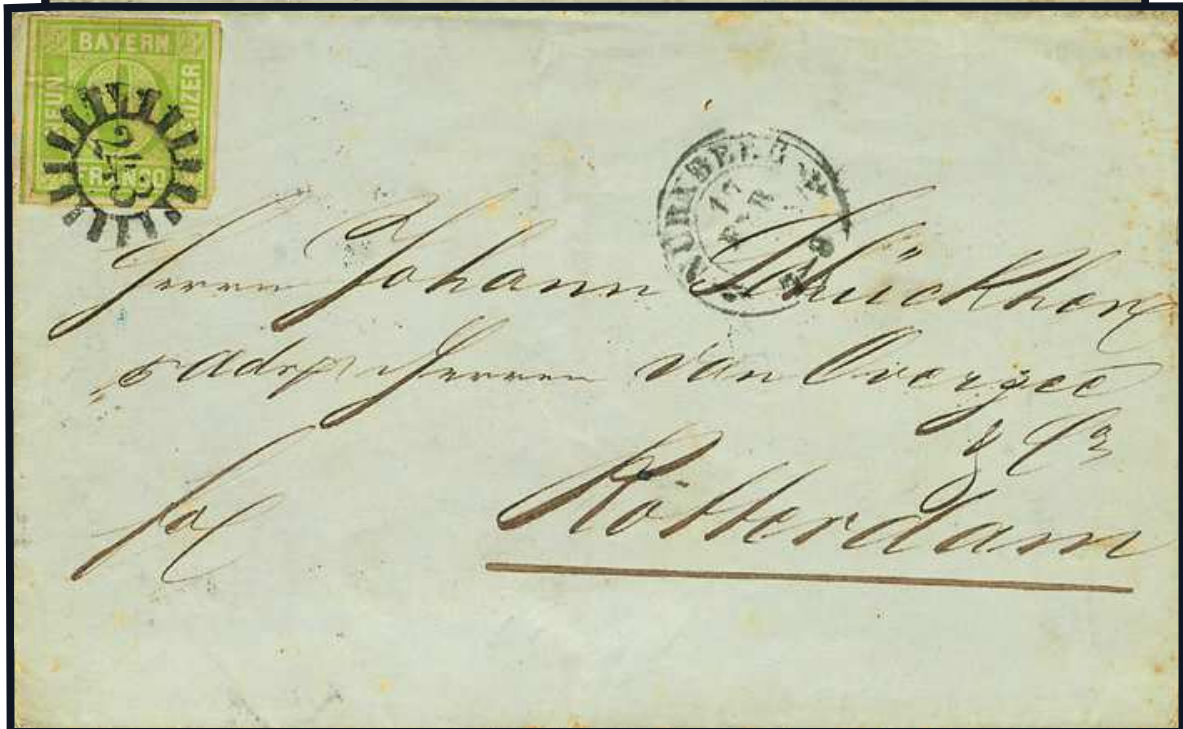 BAYERN
NEUN
KREUZER
FRANCO
243
NÜRNBERG
17
FEB
Herrn Johann
Adr. Herren van Overzee
& Co
fr
Rotterdam